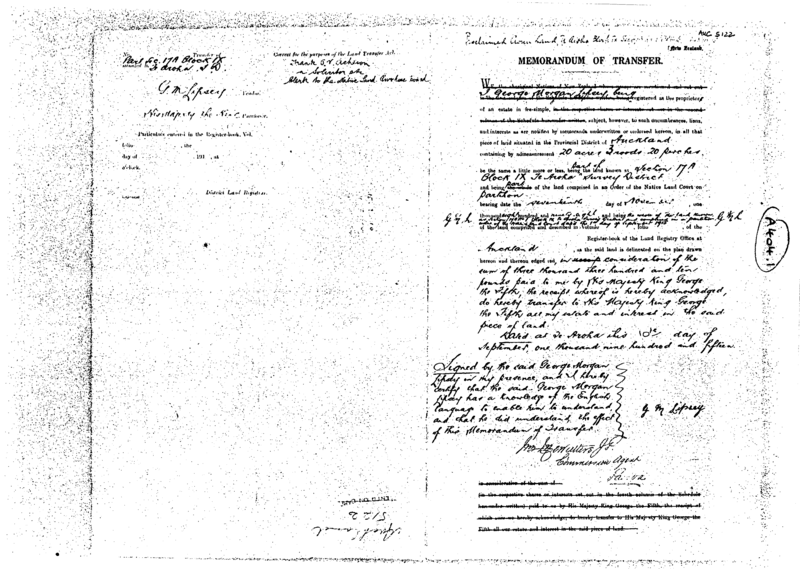 AUC 5122
No. Transfer of
Part Sec. 17A Block IX
Te Aroha S.D.
G. M. Lipsey Vendor.
His Majesty the King Purchaser.
Particulars entered in the Register-book, Vol.
folio , the
day of 191 , at
o'clock.
District Land Registrar.
Correct for the purposes of the Land Transfer Act.
Frank O. V. Acheson
a Solicitor
Clerk to the Native Land Purchase Board
[New Zealand.
MEMORANDUM OF TRANSFER.
I George Morgan Lipsey being registered as the proprietor
of an estate in fee-simple,
subject, however, to such encumbrances, liens,
and interests as are notified by memoranda underwritten or endorsed hereon, in all that
piece of land situated in the Provincial District of Auckland
containing by admeasurement 20 acres 3 roods 20 perches
be the same a little more or less, being part of the land known as Section 17A
Block IX Te Aroha Survey District
and being part of the land comprised in an Order of the Native Land Court on
partition
bearing date the seventeenth day of November, one
G. M. L G M L
of the land comprised and described in Volume , folio , of the
Register-book of the Land Registry Office at
Auckland , as the said land is delineated on the plan drawn
hereon and thereon edged red, in consideration of the
sum of three thousand three hundred and ten
pounds paid to me by His Majesty King George
the Fifth, the receipt whereof is hereby acknowledged,
do hereby transfer to His Majesty King George
the Fifth all my estate and interest in the said
piece of land.
Dated at Te Aroha this 10th day of
September, one thousand nine hundred and fifteen
Signed by the said George Morgan
Lipsey in my presence, and I hereby
certify that the said George Morgan
Lipsey has a knowledge of the English
language to enable him to understand
and that he did understand the effect
of this Memorandum of Transfer.
G M Lipsey
J.P.
Commission Agent
in consideration of the sum of
(to the respective shares or interests set out in the fourth column of the Schedule
hereunder written) paid to us by His Majesty King George the Fifth, the receipt of
which sum we hereby acknowledge, do hereby transfer to His Majesty King George the
Fifth all our estate and interest in the said piece of land.
A404.1
5122
Auckland